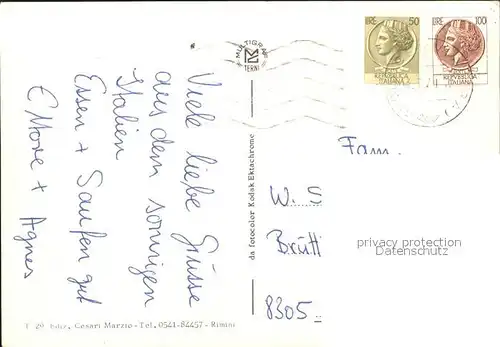 Viele liebe Grüsse
aus dem sonnigen
Italien
Essen + Saufen gut
E More + Agnes
MULTIGRAF
TERNI
da fotocolor Kodak Ektachrome
T 29 Ediz. Cesari Marzio - Tel. 0541-84457 - Rimini
LIRE 50
REPVBBLICA
ITALIANA
LIRE 100
REPVBBLICA
ITALIANA
Fam.
W. S
Brütt
8305
privacy protection
Datenschutz